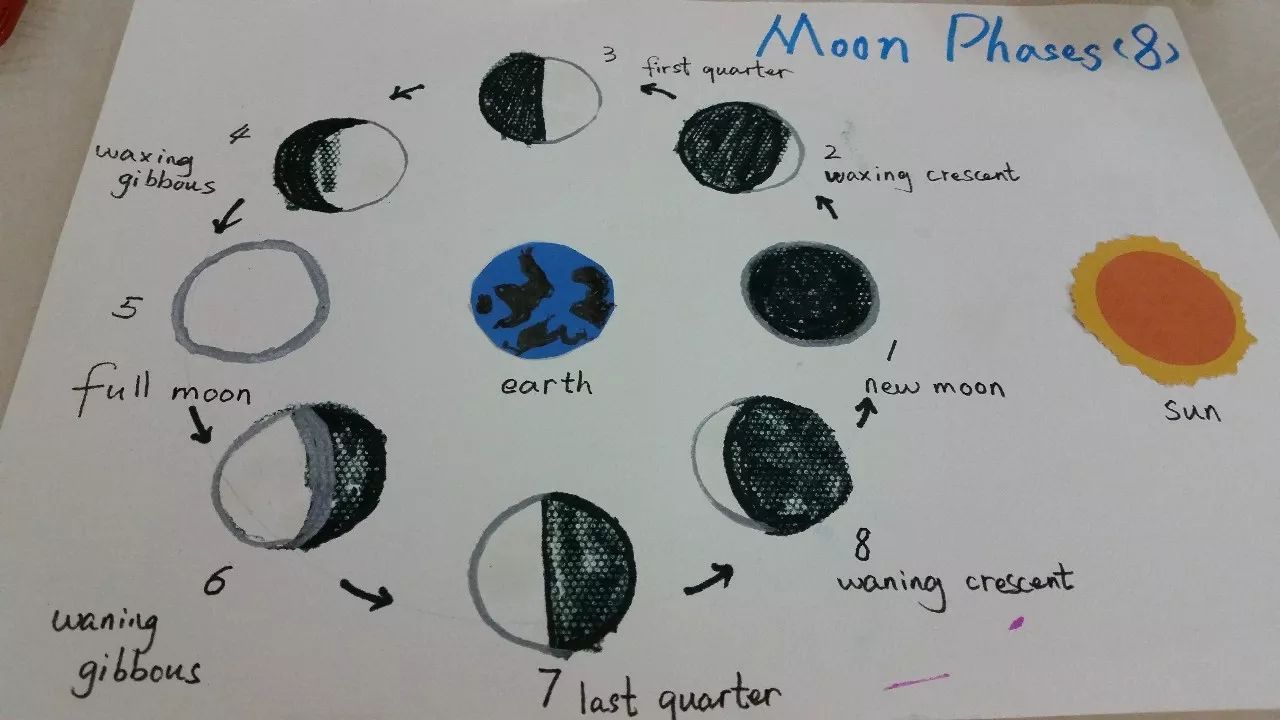 Moon Phases (8)
3
first quarter
2
waxing crescent
4
waxing
gibbous
5
full moon
earth
1
new moon
sun
6
waning
gibbous
7 last quarter
8
waning crescent